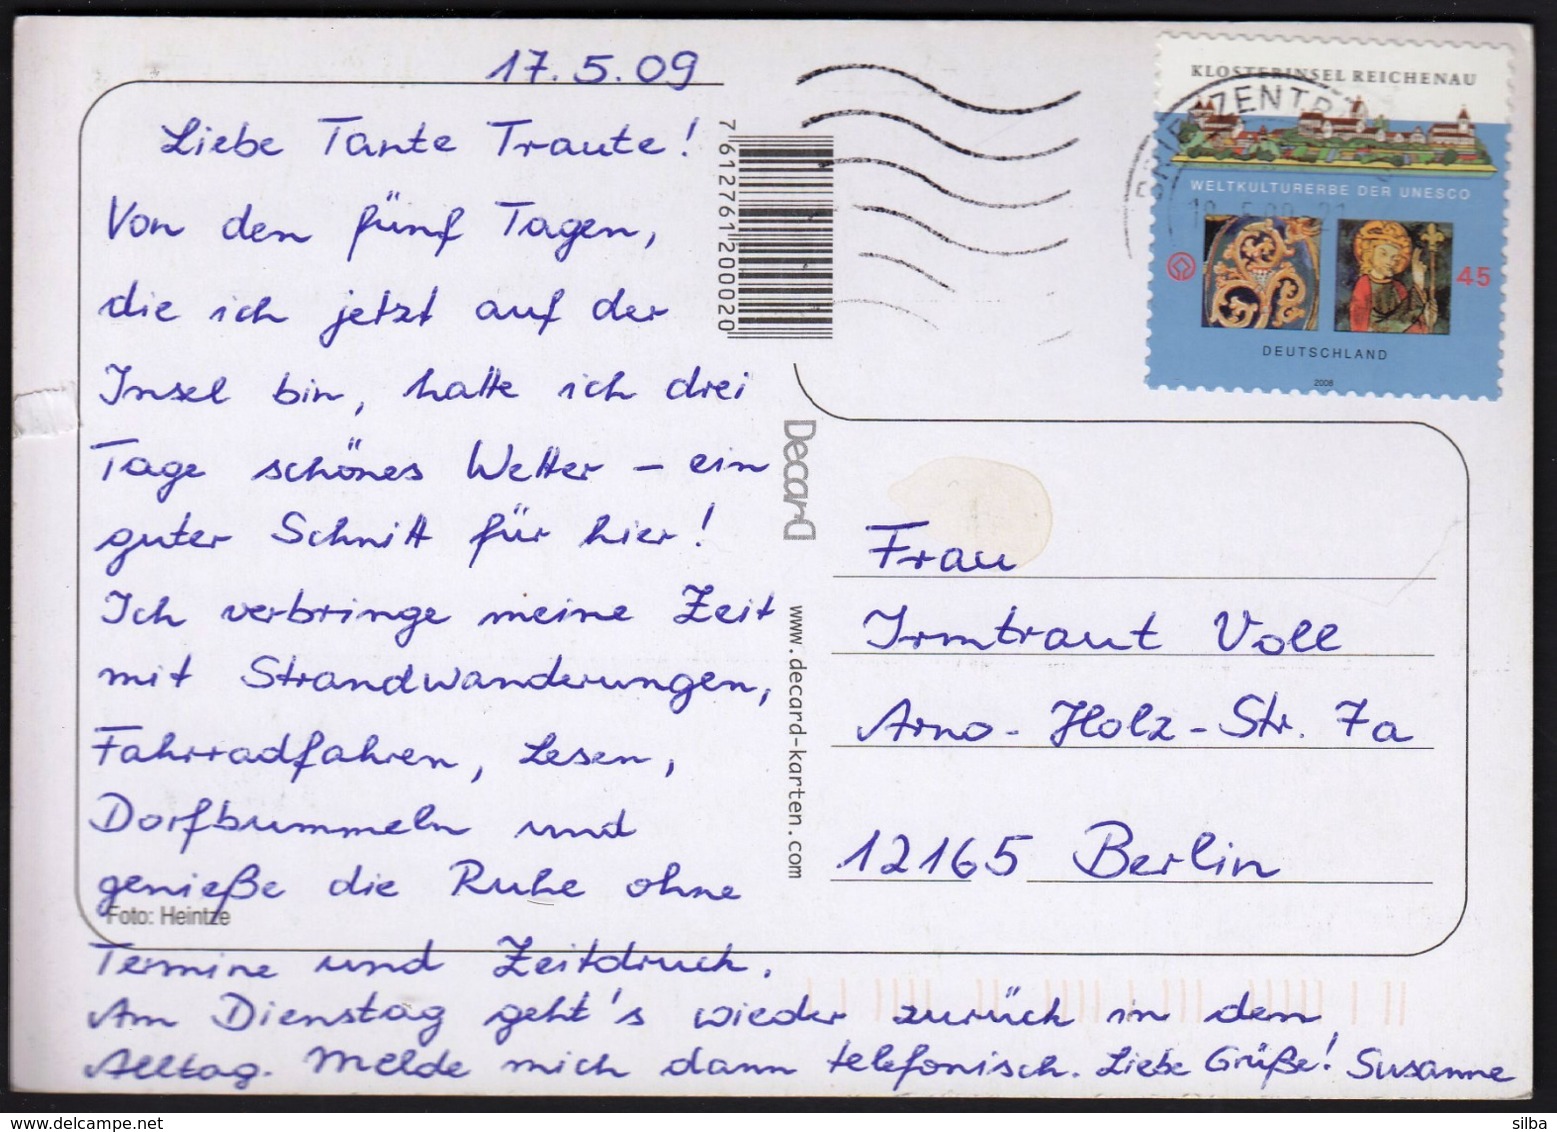 17.5.09
Liebe Tante Traute!
Von den fünf Tagen,
die ich jetzt auf der
Insel bin, hatte ich drei
Tage schönes Wetter – ein
guter Schnitt für hier!
Ich verbringe meine Zeit
mit Strandwanderungen,
Fahrradfahren, Lesen,
Dorfbummeln und
genieße die Ruhe ohne
Foto: Heintze
Termine und Zeitdruck.
Am Dienstag geht's wieder zurück in den
Alltag. Melde mich dann telefonisch. Liebe Grüße! Susanne
7612761200020
Decard
www.decard-karten.com
KLOSTERINSEL REICHENAU
WELTKULTURERBE DER UNESCO
45
DEUTSCHLAND
2008
Frau
Irmtraut Voll
Arno-Holz-Str. 7a
12165 Berlin
silba